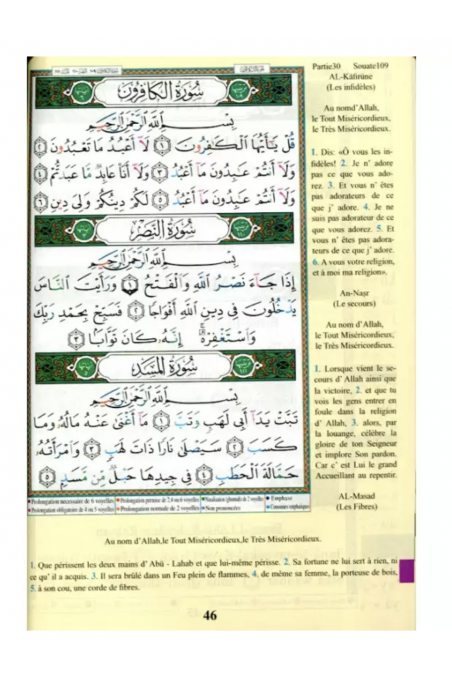 سُورَةُ الْكَافِرُونَ
بِسْمِ اللَّهِ الرَّحْمَٰنِ الرَّحِيمِ
قُلْ يَا أَيُّهَا الْكَافِرُونَ ١ لَا أَعْبُدُ مَا تَعْبُدُونَ ٢
وَلَا أَنتُمْ عَابِدُونَ مَا أَعْبُدُ ٣ وَلَا أَنَا عَابِدٌ مَّا عَبَدتُّمْ ٤
وَلَا أَنتُمْ عَابِدُونَ مَا أَعْبُدُ ٥ لَكُمْ دِينُكُمْ وَلِيَ دِينِ ٦
سُورَةُ النَّصْرِ
بِسْمِ اللَّهِ الرَّحْمَٰنِ الرَّحِيمِ
إِذَا جَاءَ نَصْرُ اللَّهِ وَالْفَتْحُ ١ وَرَأَيْتَ النَّاسَ
يَدْخُلُونَ فِي دِينِ اللَّهِ أَفْوَاجًا ٢ فَسَبِّحْ بِحَمْدِ رَبِّكَ
وَاسْتَغْفِرْهُ إِنَّهُ كَانَ تَوَّابًا ٣
سُورَةُ الْمَسَدِ
بِسْمِ اللَّهِ الرَّحْمَٰنِ الرَّحِيمِ
تَبَّتْ يَدَا أَبِي لَهَبٍ وَتَبَّ ١ مَا أَغْنَىٰ عَنْهُ مَالُهُ وَمَا
كَسَبَ ٢ سَيَصْلَىٰ نَارًا ذَاتَ لَهَبٍ ٣ وَامْرَأَتُهُ
حَمَّالَةَ الْحَطَبِ ٤ فِي جِيدِهَا حَبْلٌ مِّن مَّسَدٍ ٥
Partie30 Souate109
AL-Kâfirûne
(Les infidèles)
Au nomd'Allah,
le Tout Miséricordieux,
le Très Miséricordieux.
1. Dis: «Ô vous les in-
fidèles! 2. Je n' adore
pas ce que vous ado-
rez. 3. Et vous n' êtes
pas adorateurs de ce
que j' adore. 4. Je ne
suis pas adorateur de ce
que vous adorez. 5. Et
vous n' êtes pas adora-
teurs de ce que j' adore.
6. A vous votre religion,
et à moi ma religion».
An-Naṣr
(Le secours)
Au nom d'Allah,
le Tout Miséricordieux,
le Très Miséricordieux.
1. Lorsque vient le se-
cours d' Allah ainsi que
la victoire, 2. et que tu
vois les gens entrer en
foule dans la religion
d' Allah, 3. alors, par
la louange, célèbre la
gloire de ton Seigneur
et implore Son pardon.
Car c' est Lui le grand
Accueillant au repentir.
AL-Masad
(Les Fibres)
Prolongation nécessaire de 6 voyelles Prolongation permise de 2,4 ou 6 voyelles Nasalisation (ghunnah) de 2 voyelles Emphase
Prolongation obligatoire de 4 ou 5 voyelles Prolongation normale de 2 voyelles Non prononcées Consonnes emphatiques
Au nom d'Allah,le Tout Miséricordieux,le Très Miséricordieux.
1. Que périssent les deux mains d' Abû - Lahab et que lui-même périsse. 2. Sa fortune ne lui sert à rien, ni
ce qu' il a acquis. 3. Il sera brûlé dans un Feu plein de flammes, 4. de même sa femme, la porteuse de bois,
5. à son cou, une corde de fibres.
46